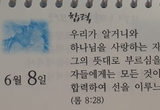 합력
우리가 알거니와
하나님을 사랑하는 자
그의 뜻대로 부르심을
자들에게는 모든 것이
합력하여 선을 이루느
(롬 8:28)
6월 8일